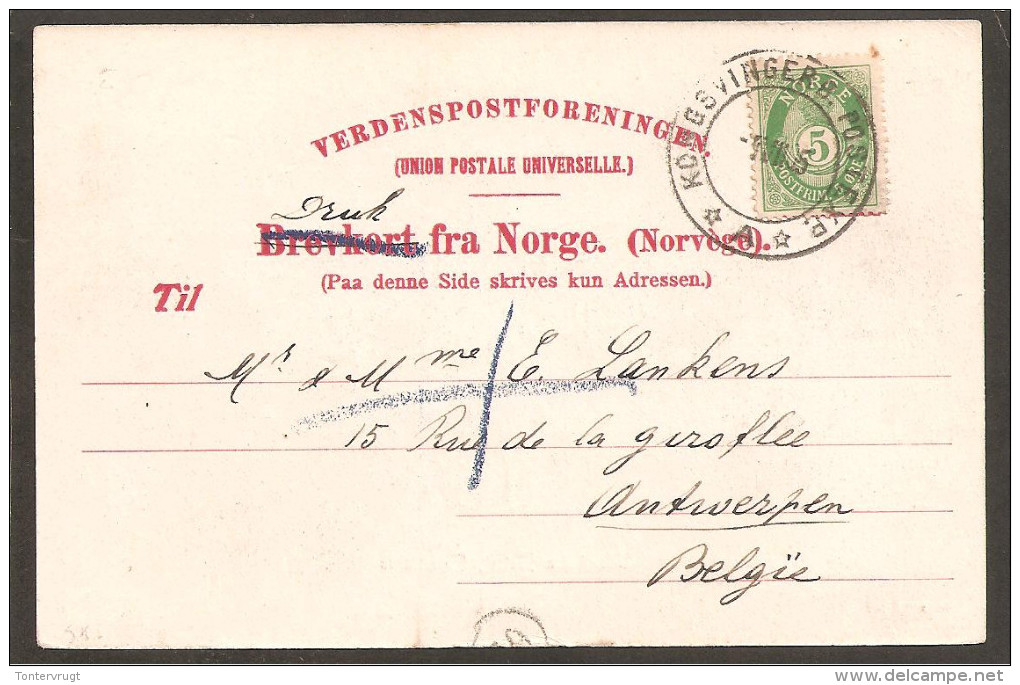 VERDENSPOSTFORENINGEN.
(UNION POSTALE UNIVERSELLE.)
Druk
Brevkort fra Norge. (Norvège).
(Paa denne Side skrives kun Adressen.)
Til
KONGSVINGERS POSTEXP. A
NORGE
5
POSTFRIM. ØRE
Mr & Mme E. Lankens
15 Rue de la giroflée
Antwerpen
Belgïe
Tontervrugt
delcampe.net